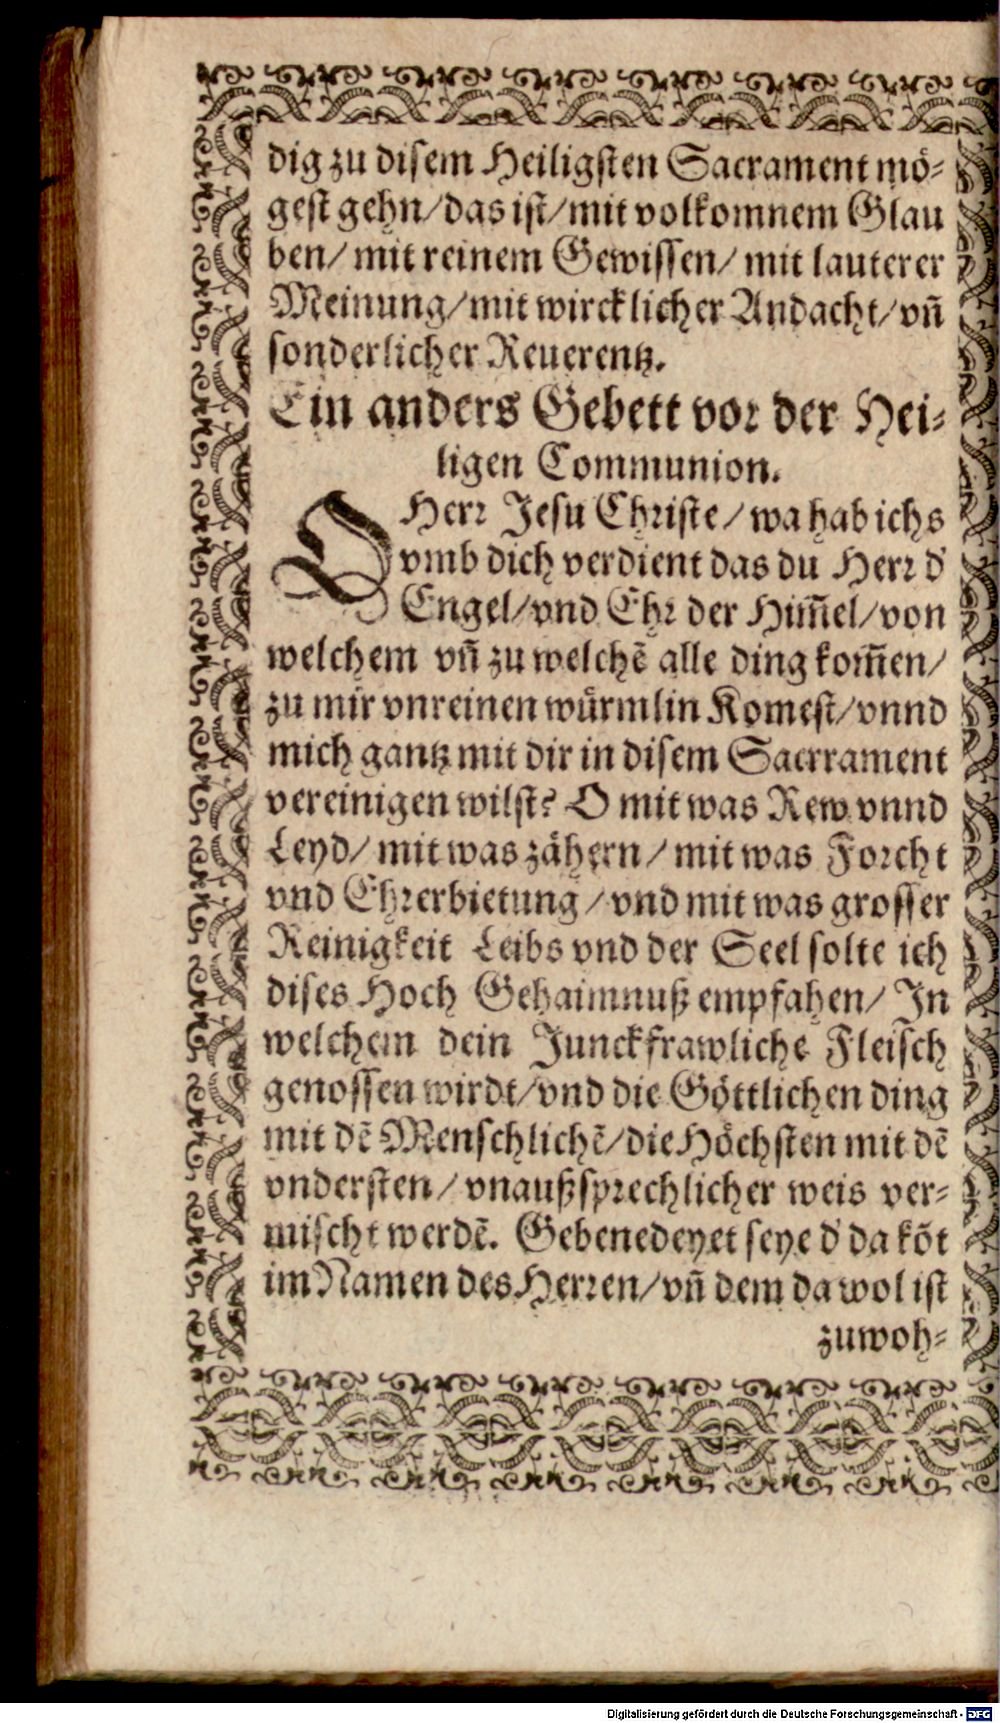 dig zu disem Heiligsten Sacrament mö-
gest gehn/das ist/mit volkomnem Glau
ben/ mit reinem Gewissen/ mit lauterer
Meinung/mit wircklicher Andacht/vñ
sonderlicher Reuerentz.
Ein anders Gebett vor der Hei-
ligen Communion.
O Herr Jesu Christe/wa hab ichs
vmb dich verdient das du Herr d'
Engel/vnd Ehr der Him̃el/von
welchem vñ zu welchẽ alle ding kom̃en/
zu mir vnreinen würmlin Komest/vnnd
mich gantz mit dir in disem Sacrrament
vereinigen wilst? O mit was Rew vnnd
Leyd/ mit was zähern/mit was Forcht
vnd Ehrerbietung/vnd mit was grosser
Reinigkeit Leibs vnd der Seel solte ich
dises Hoch Gehaimnuß empfahen/ In
welchem dein Junckfrawliche Fleisch
genossen wirdt/vnd die Göttlichen ding
mit dẽ Menschlichẽ/die Höchsten mit dẽ
vndersten/vnaußsprechlicher weis ver-
mischt werdẽ. Gebenedeyet seye d' da kõt
im Namen des Herren/vñ dem da wol ist
zuwoh-
Digitalisierung gefördert durch die Deutsche Forschungsgemeinschaft - DFG